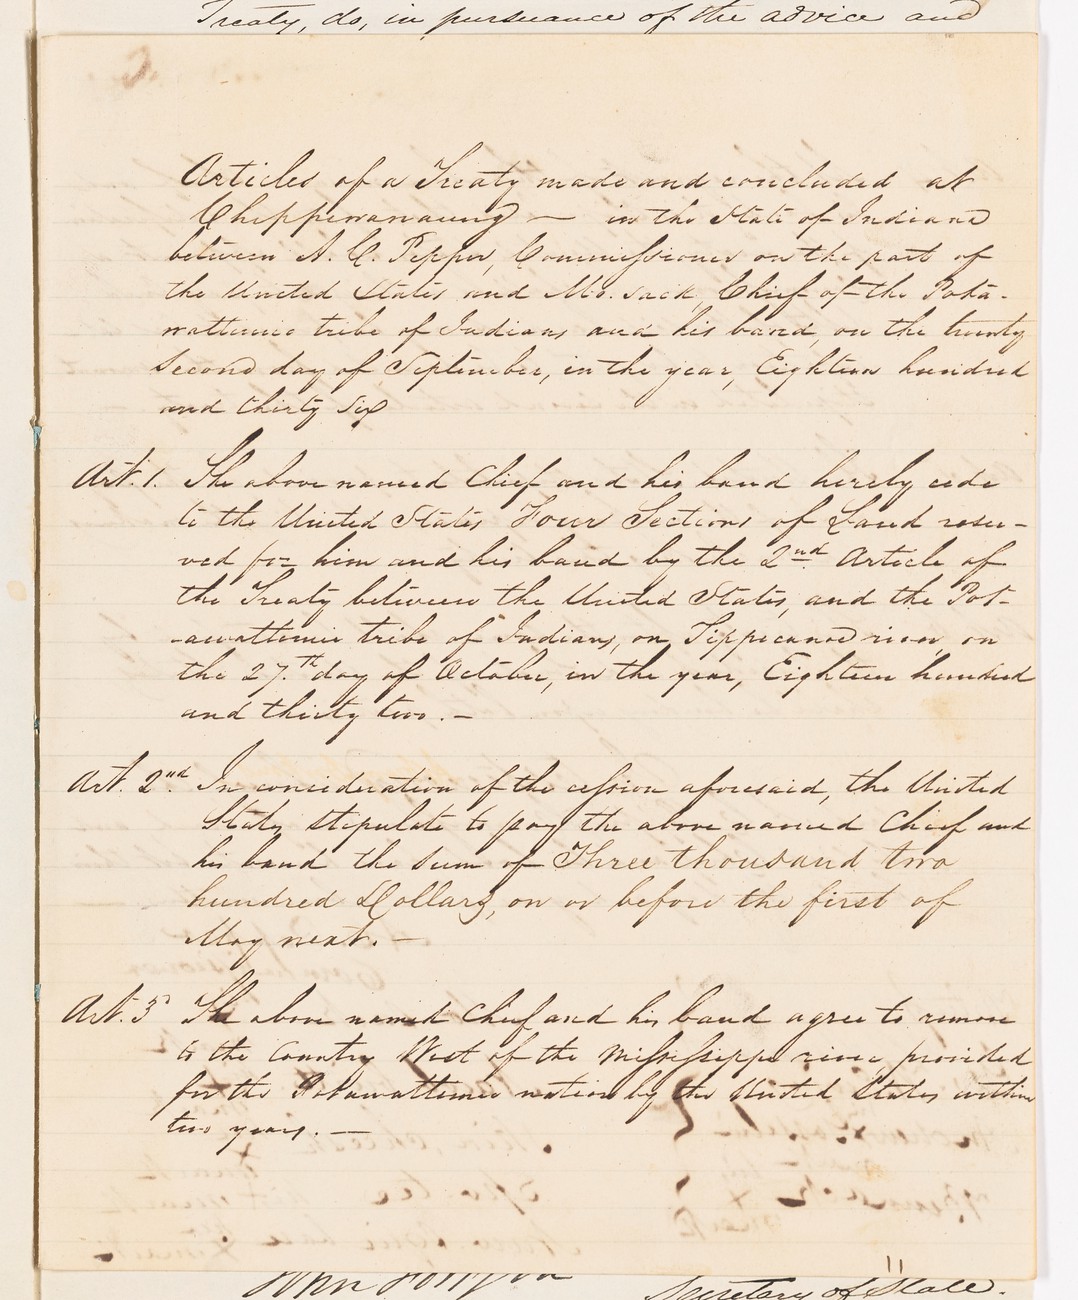 Treaty, do, in pursuance of the advice and
Articles of a Treaty made and concluded at
Chippewanaung — in the State of Indiana
between A. C. Pepper, Commissioner on the part of
the United States and Mo-sack, Chief of the Pota-
wattimie tribe of Indians and his band, on the twenty
second day of September, in the year, Eighteen hundred
and thirty six
Art. 1. The above named Chief and his band hereby cede
to the United States Four Sections of Land reser-
ved for him and his band by the 2nd Article of
the Treaty between the United States, and the Pot-
-awattimie tribe of Indians, on Tippecanoe river, on
the 27.th day of October, in the year, Eighteen hundred
and thirty two. —
Art. 2nd. In consideration of the cession aforesaid, the United
States stipulate to pay the above named Chief and
his band the sum of Three thousand two
hundred Dollars, on or before the first of
May next. —
Art. 3 The above named Chief and his band agree to remove
to the country West of the Mississippi river, provided
for the Potawattimie nation by the United States within
two years. —
John Forsyth
Secretary of State.